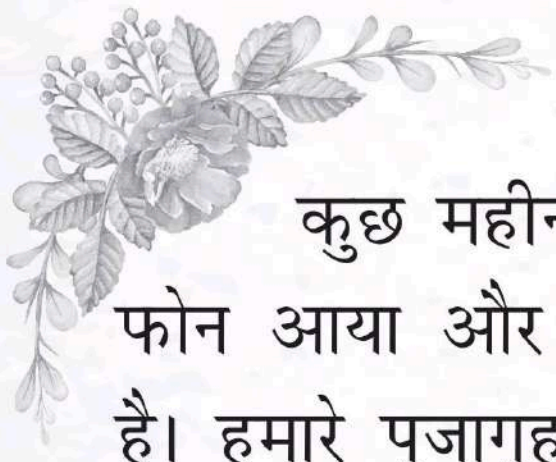 कुछ महीन
फोन आया और
है। हमारे पजागह